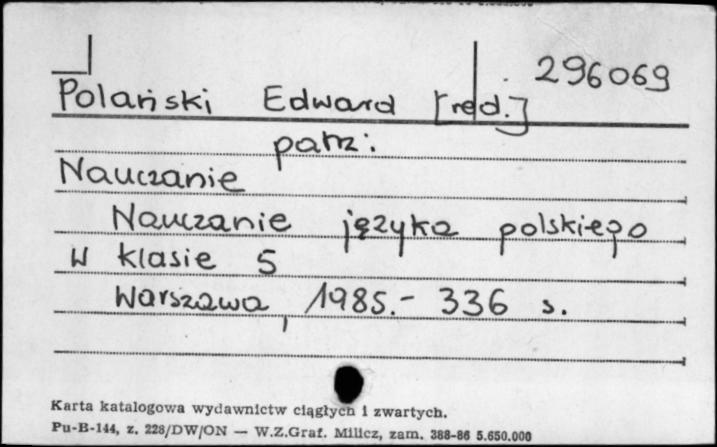 296069
Polański Edward [red.]
patrz:
Nauczanie
Nauczanie języka polskiego
w klasie 5
Warszawa, 1985.- 336 s.
Karta katalogowa wydawnictw ciągłych i zwartych.
Pu-B-144, z. 228/DW/ON — W.Z.Graf. Milicz, zam. 388-86 5.650.000